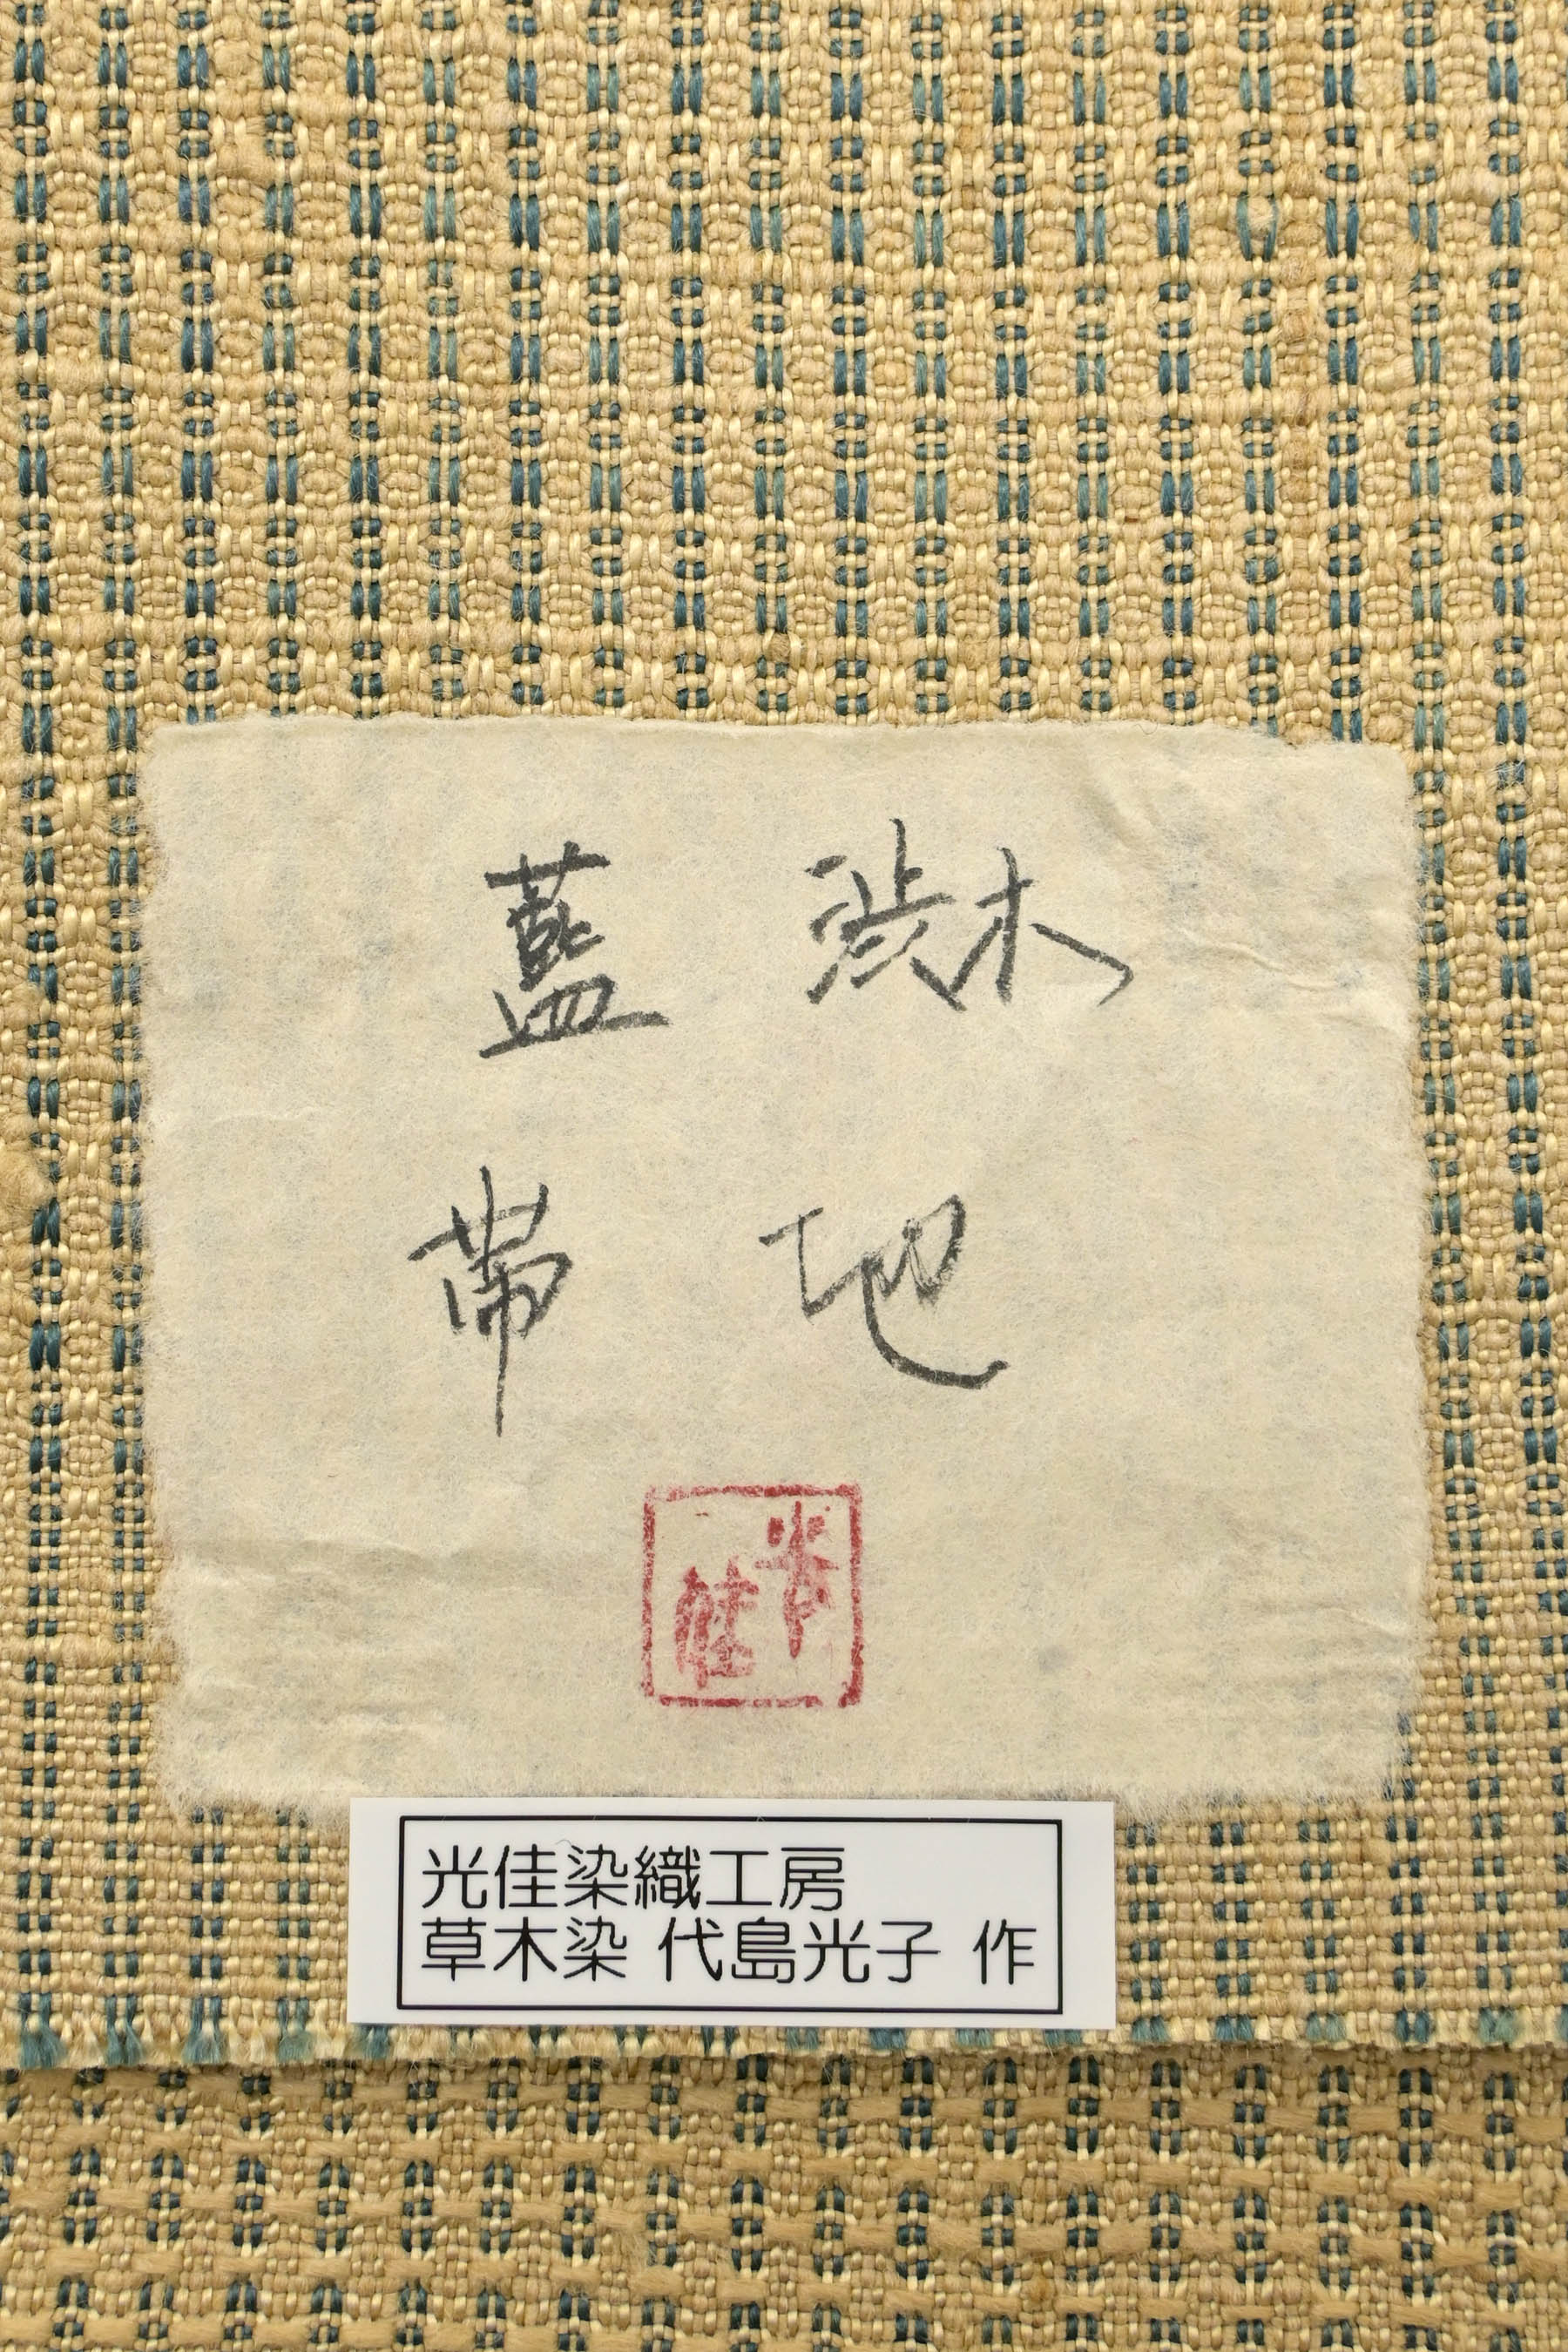 藍 渋木
帯 地
光佳
光佳染織工房
草木染 代島光子 作